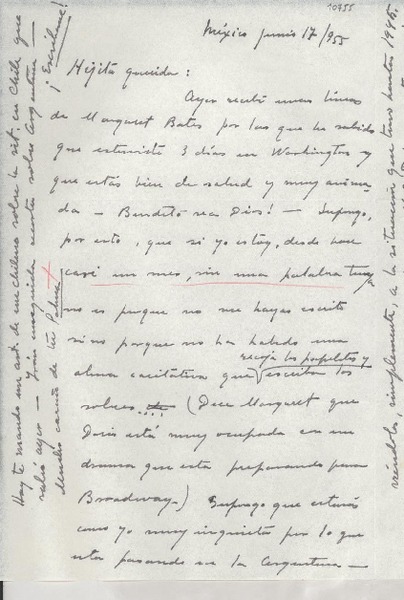 10755
México junio 17/955
Hijita querida:
Ayer recibí unas líneas
de Margaret Bates por las que he sabido
que estuviste 3 días en Washington y
que estás bien de salud y muy anima-
da — Bendito sea Dios! — Supongo,
por esto, que si yo estoy, desde hace
casi un mes, sin una palabra tuya
no es porque no me hayas escrito
sino porque no ha habido una
alma caritativa que recoja los papelitos y escriba los
sobres.... (Dice Margaret que
Doris está muy ocupada con un
drama que está preparando para
Broadway.) Supongo que estarás
como yo muy inquieta por lo que
está pasando en la Argentina —
viéndolo, simplemente, a la situación que tuvo antes 1945.
Hoy te mando un art. de un chileno sobre la sit. en Chile que
salió ayer — Irán enseguida recortes sobre Argentina —
Mucho cariño de tu Palma
¡Escríbeme!